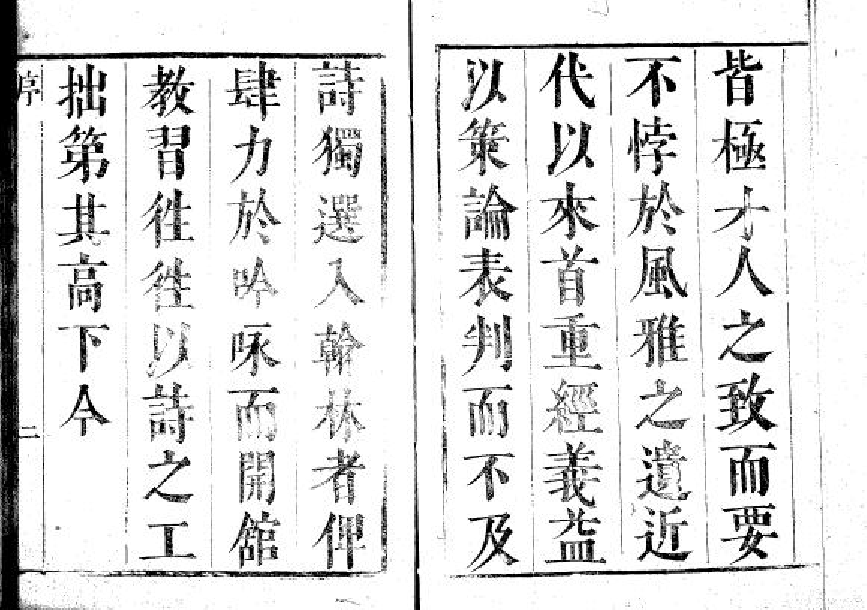 皆極才人之致而要
不悖於風雅之遺近
代以來首重經義益
以策論表判而不及
詩獨選入翰林者俾
肆力於吟咏而開館
教習徃徃以詩之工
拙第其高下今
序
二